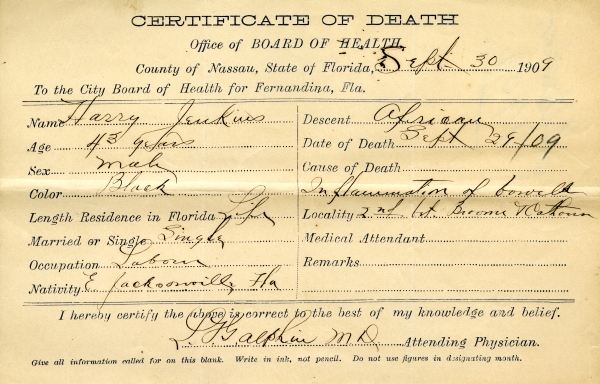 CERTIFICATE OF DEATH
Office of BOARD OF HEALTH.
County of Nassau, State of Florida, Sept 30 1909
To the City Board of Health for Fernandina, Fla.
Name Harry Jenkins
Age 43 years
Sex Male
Color Black
Length Residence in Florida Life
Married or Single Single
Occupation Laborer
Nativity E Jacksonville Fla
Descent African
Date of Death Sept 29/09
Cause of Death
Inflammation of bowels
Locality 2nd bt Broome
Medical Attendant
Remarks
I hereby certify the above is correct to the best of my knowledge and belief.
Galphin M D Attending Physician.
Give all information called for on this blank. Write in ink, not pencil. Do not use figures in designating month.